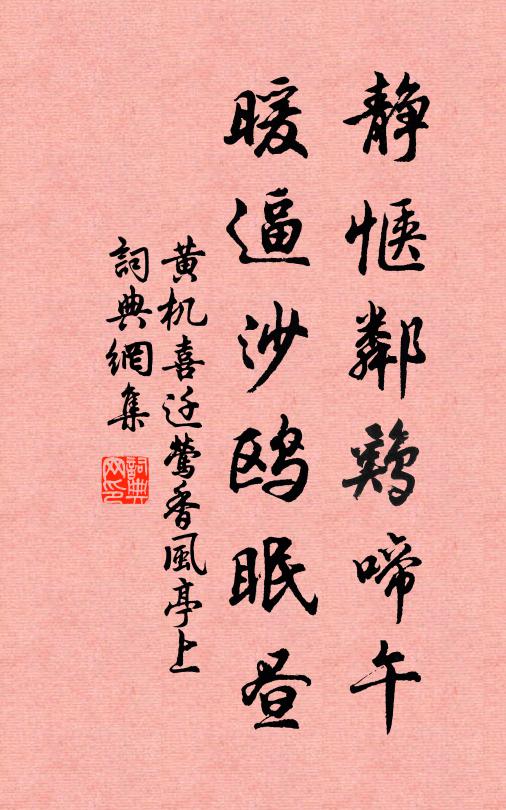 静惬鄰鷄啼午
暖逼沙鸥眠昼
黄机喜迁莺香風亭上
詞典網集
詞典网印